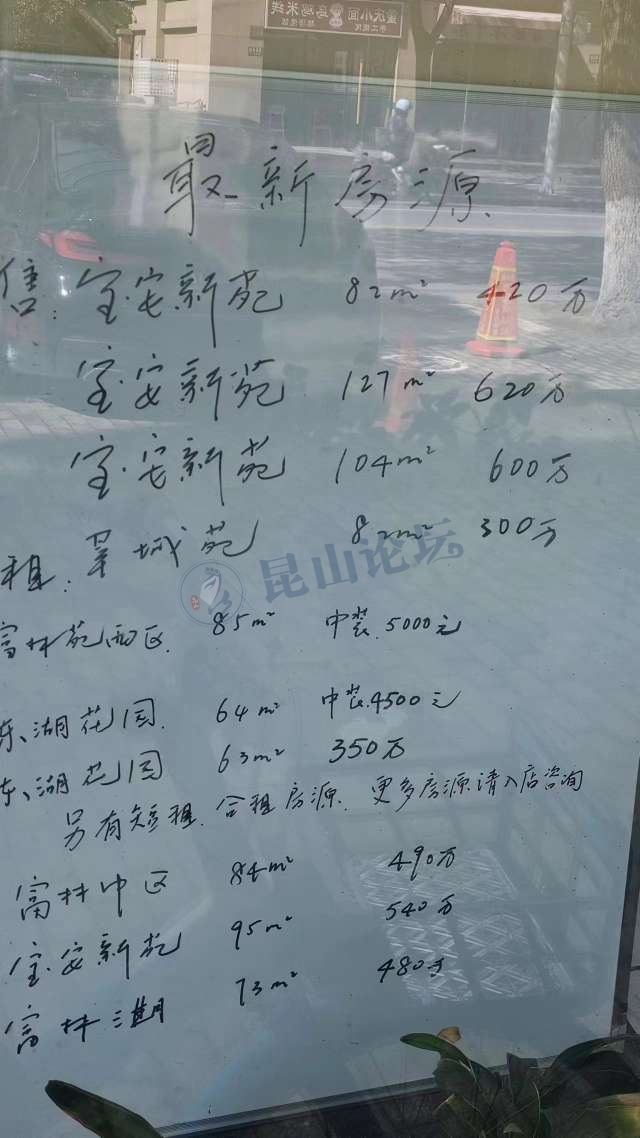 重庆小面
乌鸡米线
最新房源
售:宝安新苑 82m² 420万
宝安新苑 127m² 620万
宝安新苑 104m² 600万
城苑 82m² 300万
租:
富林苑西区 85m² 中装.5000元
东湖花园 64m² 中装.4500元
东湖花园 63m² 350万
另有短租.合租房源.更多房源请入店咨询
富林中区 84m² 490万
宝安新苑 95m² 540万
富林三期 73m² 480万
昆山论坛